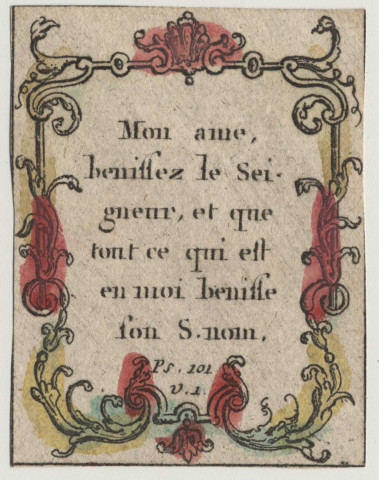 Mon ame,
benissez le Sei-
gneur, et que
tout ce qui est
en moi benisse
son S. nom.
Ps. 101
v. 1.